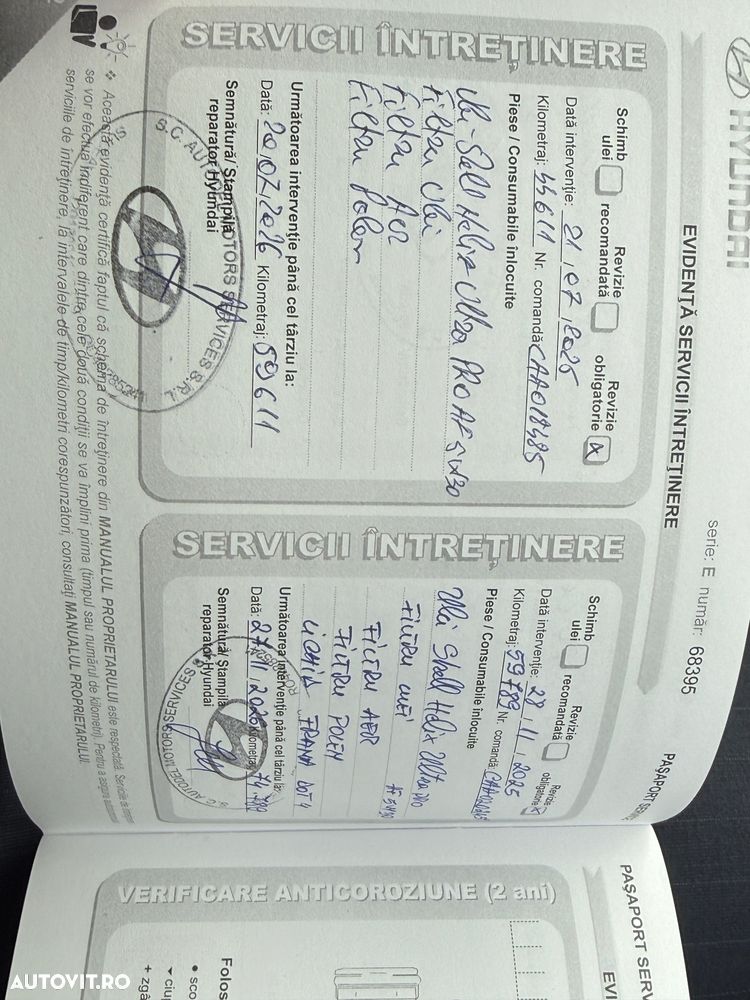 HYUNDAI
EVIDENȚĂ SERVICII ÎNTREȚINERE
serie: E număr: 68395
SERVICII ÎNTREȚINERE
Schimb ulei
Revizie recomandată
Revizie obligatorie X
Dată intervenție: 21.07.2025
Kilometraj: 44611 Nr. comandă: CAA018485
Piese / Consumabile înlocuite
Ulei Shell Helix Ultra PRO AF 5W30
Filtru Ulei
Filtru Aer
Filtru Polen
Următoarea intervenție până cel târziu la:
Dată: 20.07.2026 Kilometraj: 59611
Semnătură/ Ștampilă
reparator Hyundai
S.C. AUTODEL MOTORS SERVICES S.R.L.
SERVICII ÎNTREȚINERE
Schimb ulei
Revizie recomandată
Revizie obligatorie X
Dată intervenție: 28.11.2025
Kilometraj: 59789 Nr. comandă:
Piese / Consumabile înlocuite
Ulei Shell Helix Ultra PRO
AF 5W30
FILTRU ULEI
FILTRU AER
FILTRU POLEN
LICHID FRANA DOT 4
Următoarea intervenție până cel târziu la:
Dată: 27.11.2026 Kilometraj: 74.789
Semnătură/ Ștampilă
reparator Hyundai
S.C. AUTODEL MOTORS SERVICES
❖ Această evidență certifică faptul că schema de întreținere din MANUALUL PROPRIETARULUI este respectată. Serviciile de întreținere
se vor efectua indiferent care dintre cele două condiții se va împlini prima (timpul sau numărul de kilometri). Pentru a asigura
serviciile de întreținere, la intervalele de timp/kilometri corespunzători, consultați MANUALUL PROPRIETARULUI.
PAȘAPORT SERVICE
PAȘAPORT SERV
EVI
VERIFICARE ANTICOROZIUNE (2 ani)
Folos
• sco
▾ ciu
+ zgâ
AUTOVIT.RO